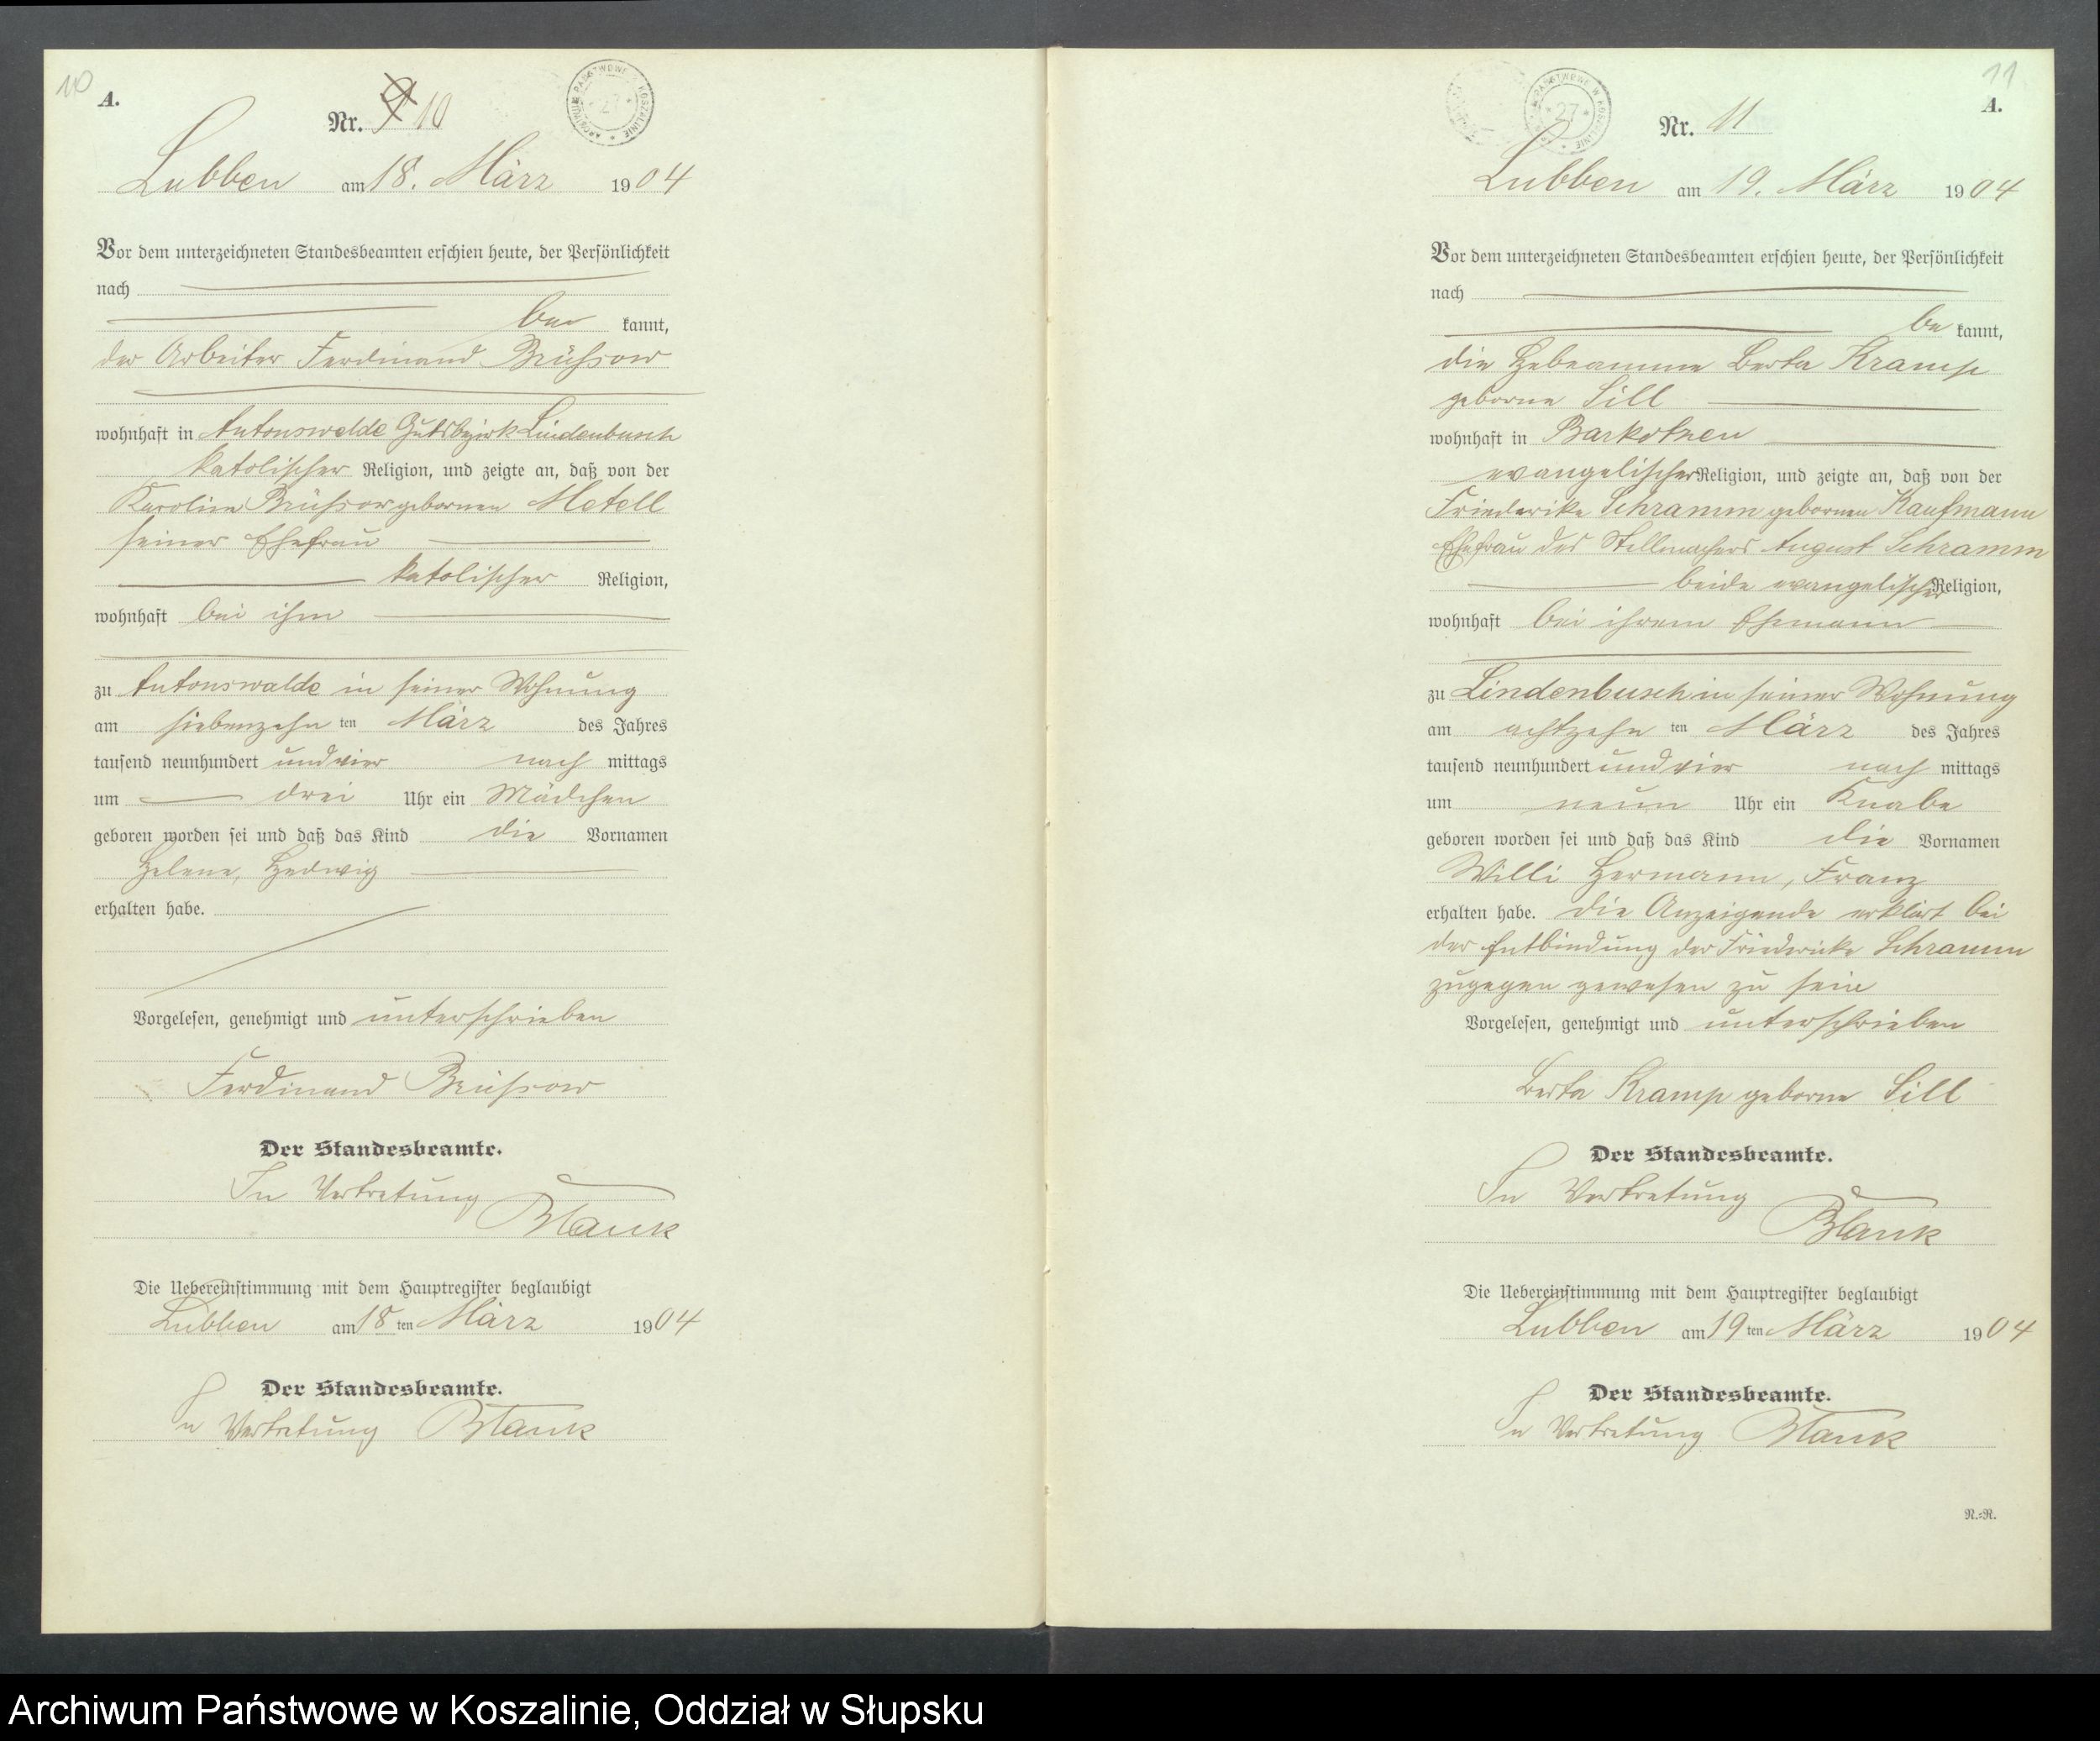 10
A.
Nr. 9 10
ARCHIWUM PAŃSTWOWE W KOSZALINIE
27
Lubben am 18. März 1904
Vor dem unterzeichneten Standesbeamten erschien heute, der Persönlichkeit
nach
be kannt,
der Arbeiter Ferdinand Brüssow
wohnhaft in Antonswalde Gutsbezirk Lindenbusch
katolischer Religion, und zeigte an, daß von der
Karoline Brüssow gebornen
seiner Ehefrau
katolischer Religion,
wohnhaft bei ihm
zu Antonswalde in seiner Wohnung
am siebenzehn ten März des Jahres
tausend neunhundert und vier nach mittags
um drei Uhr ein Mädchen
geboren worden sei und daß das Kind die Vornamen
Helene, Hedwig
erhalten habe.
Vorgelesen, genehmigt und unterschrieben
Ferdinand Brüssow
Der Standesbeamte.
In Vertretung
Blank
Die Uebereinstimmung mit dem Hauptregister beglaubigt
Lubben am 18 ten März 1904
Der Standesbeamte.
In Vertretung Blank
11
A.
Nr. 11
27
Lubben am 19. März 1904
Vor dem unterzeichneten Standesbeamten erschien heute, der Persönlichkeit
nach
be kannt,
die Hebeamme Berta Kramp
geborne Sill
wohnhaft in Barkotzen
evangelischer Religion, und zeigte an, daß von der
Friederike Schramm gebornen Kaufmann
Ehefrau des Stellmachers August Schramm
beide evangelischer Religion,
wohnhaft bei ihrem Ehemann
zu Lindenbusch in seiner Wohnung
am achtzehn ten März des Jahres
tausend neunhundert und vier nach mittags
um neun Uhr ein Knabe
geboren worden sei und daß das Kind die Vornamen
Willi Hermann, Franz
erhalten habe. die Anzeigende erklärt bei
der Entbindung der Friedericke Schramm
zugegen gewesen zu sein
Vorgelesen, genehmigt und unterschrieben
Berta Kramp geborne Sill
Der Standesbeamte.
In Vertretung
Blank
Die Uebereinstimmung mit dem Hauptregister beglaubigt
Lubben am 19 ten März 1904
Der Standesbeamte.
In Vertretung Blank
N.=R.
Archiwum Państwowe w Koszalinie, Oddział w Słupsku